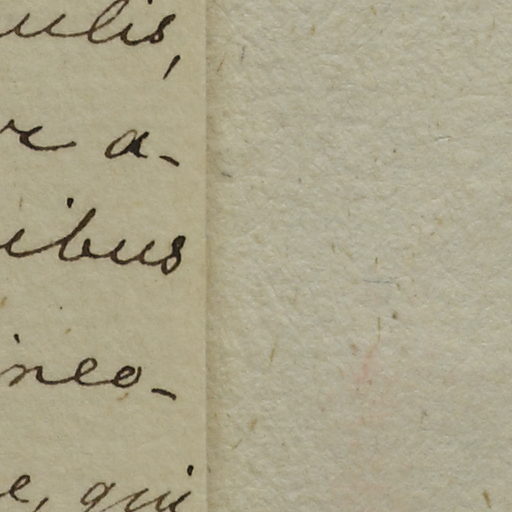 ulis,
a-
ibus
ineo-
e, qui